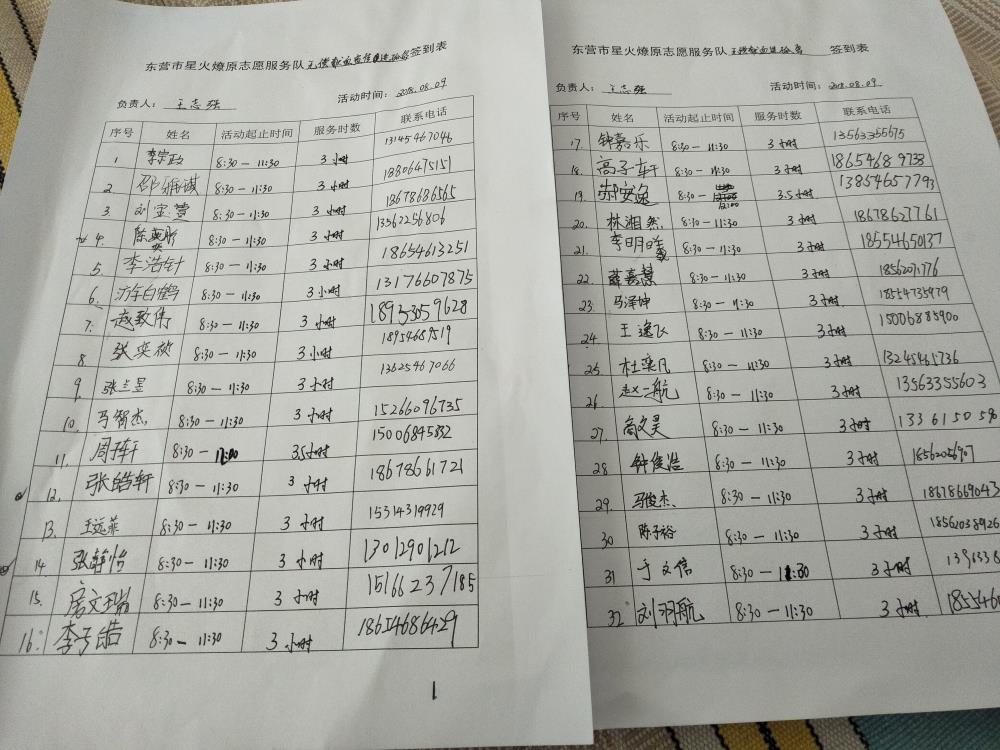 东营市星火燎原志愿服务队 签到表
负责人：王志强 活动时间：2018.08.09
序号 姓名 活动起止时间 服务时数 联系电话
1 李宗政 8:30-11:30 3小时 13145467046
2. 8:30-11:30 3小时 18806475151
3. 刘宝萱 8:30-11:30 3小时 18678686565
4. 8:30-11:30 3小时 13562256806
5. 李浩针 8:30-11:30 3小时 18654613251
6. 8:30-11:30 3小时 13176607875
7. 赵致伟 8:30-11:30 3小时 18953559628
8 张奕祯 8:30-11:30 3小时 1895468
9. 张兰昱 8:30-11:30 3小时 13625467066
10. 马智杰 8:30-11:30 3小时 15266096735
11. 周于轩 8:30- 3.5小时 15006845832
12. 张皓轩 8:30-11:30 3小时 18678661721
13. 王远菲 8:30-11:30 3小时 15314319929
14. 张静怡 8:30-11:30 3小时 13012901212
15. 房文瑞 8:30-11:30 3小时 15166237185
16. 李于皓 8:30-11:30 3小时 18654686429
1
东营市星火燎原志愿服务队 签到表
负责人：王志强 活动时间：2018.08.09
序号 姓名 活动起止时间 服务时数 联系电话
17. 钟嘉乐 8:30-11:30 3小时 13563355675
18. 高子轩 8:30-11:30 3小时 18654689738
19. 郝安逸 8:30- 12:00 3.5小时 13854657793
20. 林湘然 8:30-11:30 3小时 18678627761
21. 李明 8:30-11:30 3小时 18554650137
22. 薛嘉慧 8:30-11:30 3小时 18562071776
23. 马泽坤 8:30-11:30 3小时 18554735979
24. 王逸飞 8:30-11:30 3小时 15006885900
25. 杜奕凡 8:30-11:30 3小时 13245465736
26. 赵一航 8:30-11:30 3小时 13563355603
27. 高文昊 8:30-11:30 3小时 133615058
28 钟俊浩 8:30-11:30 3小时 18562056907
29. 马俊杰 8:30-11:30 3小时 18678669043
30 陈子裕 8:30-11:30 3小时 18562038926
31 于文信 8:30-11:30 3小时 1396338
32 刘羽航 8:30-11:30 3小时 1855460